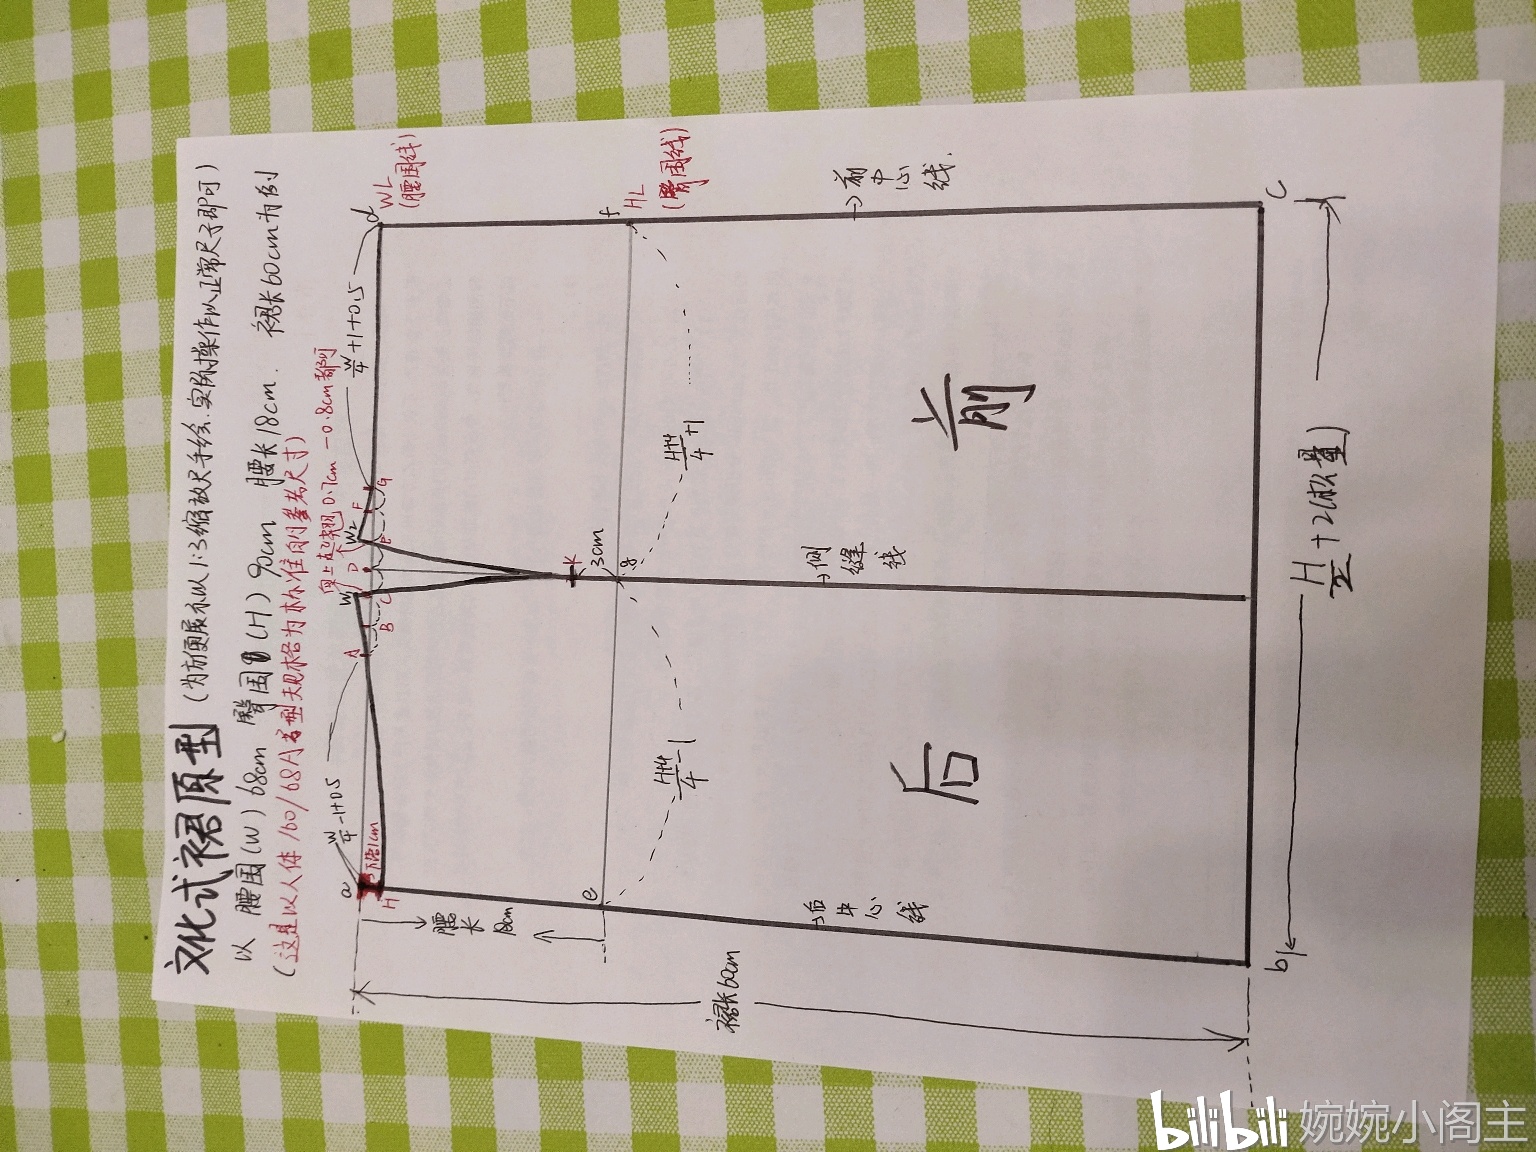 文化式裙原型 (为方便展示以1:3缩放尺手绘.实际操作以正常尺子即可)
以 腰围(W) 68cm 臀围(H) 90cm 腰长18cm. 裙长60cm为例
(这是以人体160/68A号型规格为标准的参考尺寸)
向上起翘0.7cm-0.8cm都可
a
W/4-1+0.5
W/4+1+0.5
d
WL
(腰围线)
下落1cm
H
A
B
C
W1
D
W2
E
F
G
腰长 18cm
K
3cm
e
g
f
HL
(臀围线)
H+4/4-1
H+4/4+1
后中心线
侧缝线
前中心线.
后
前
裙长60cm
b
c
H/2+2(松量)
bilibili 婉婉小阁主